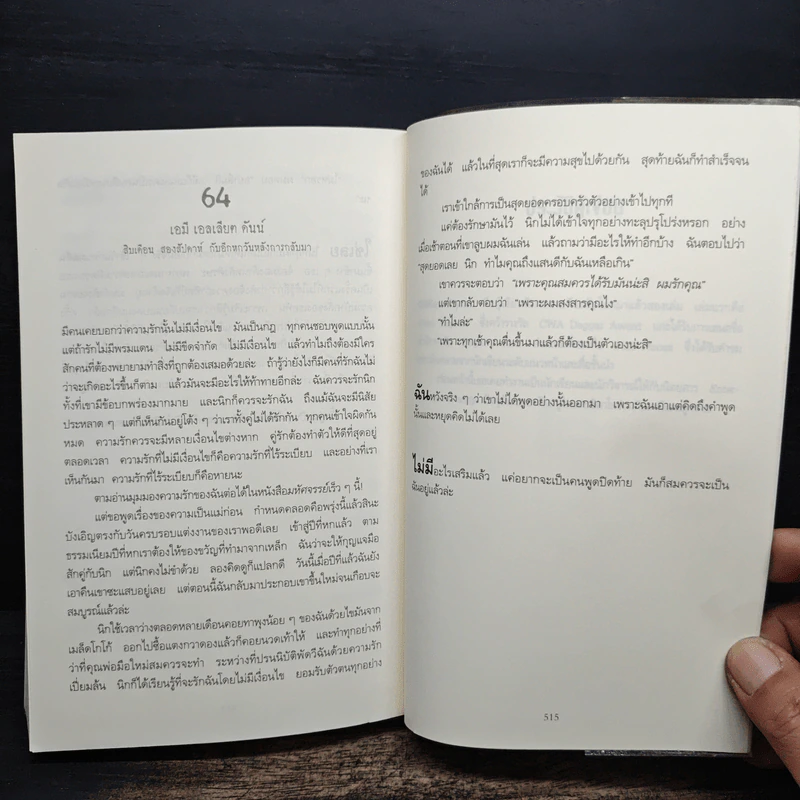 64
เอมี เอลเลียต ดันน์
สิบเดือน สองสัปดาห์ กับอีกหกวันหลังการกลับมา
มีคนเคยบอกว่าความรักนั้นไม่มีเงื่อนไข มันเป็นกฎ ทุกคนชอบพูดแบบนั้น
แต่ถ้ารักไม่มีพรมแดน ไม่มีขีดจำกัด ไม่มีเงื่อนไข แล้วทำไมถึงต้องมีใคร
สักคนที่ต้องพยายามทำสิ่งที่ถูกต้องเสมอด้วยล่ะ ถ้ารู้ว่ายังไงก็มีคนที่รักฉันไม่
ว่าจะเกิดอะไรขึ้นก็ตาม แล้วมันจะมีอะไรให้ท้าทายอีกล่ะ ฉันควรจะรักนิก
ทั้งที่เขามีข้อบกพร่องมากมาย และนิกก็ควรจะรักฉัน ถึงแม้ฉันจะมีนิสัย
ประหลาด ๆ แต่ก็เห็นกันอยู่โต้ง ๆ ว่าเราทั้งคู่ไม่ได้รักกัน ทุกคนเข้าใจผิดกัน
หมด ความรักควรจะมีหลายเงื่อนไขต่างหาก คู่รักต้องทำตัวให้ดีที่สุดอยู่
ตลอดเวลา ความรักที่ไม่มีเงื่อนไขก็คือความรักที่ไร้ระเบียบ และอย่างที่เรา
เห็นกันมา ความรักที่ไร้ระเบียบก็คือหายนะ
ตามอ่านมุมมองของความรักของฉันต่อได้ในหนังสือมหัศจรรย์เร็ว ๆ นี้!
แต่ขอพูดเรื่องของความเป็นแม่ก่อน กำหนดคลอดคือพรุ่งนี้แล้วสินะ
บังเอิญตรงกับวันครบรอบแต่งงานของเราพอดีเลย เข้าสู่ปีที่หกแล้ว ตาม
ธรรมเนียมปีที่หกเราต้องให้ของขวัญที่ทำมาจากเหล็ก ฉันว่าจะให้กุญแจมือ
สักคู่กับนิก แต่นิกคงไม่ขำด้วย ลองคิดดูก็แปลกดี วันนี้เมื่อปีที่แล้วฉันยัง
เอาคืนเขาซะแสบอยู่เลย แต่ตอนนี้ฉันกลับมาประกอบเขาขึ้นใหม่จนเกือบจะ
สมบูรณ์แล้วล่ะ
นิกใช้เวลาว่างตลอดหลายเดือนคอยทาพุงน้อย ๆ ของฉันด้วยไขมันจาก
เมล็ดโกโก้ ออกไปซื้อแตงกวาดองแล้วก็คอยนวดเท้าให้ และทำทุกอย่างที่
ว่าที่คุณพ่อมือใหม่สมควรจะทำ ระหว่างที่ปรนนิบัติพัดวีฉันด้วยความรัก
เปี่ยมล้น นิกก็ได้เรียนรู้ที่จะรักฉันโดยไม่มีเงื่อนไข ยอมรับตัวตนทุกอย่าง
ของฉันได้ แล้วในที่สุดเราก็จะมีความสุขไปด้วยกัน สุดท้ายฉันก็ทำสำเร็จจน
ได้
เราเข้าใกล้การเป็นสุดยอดครอบครัวตัวอย่างเข้าไปทุกที
แค่ต้องรักษามันไว้ นิกไม่ได้เข้าใจทุกอย่างทะลุปรุโปร่งหรอก อย่าง
เมื่อเช้าตอนที่เขาลูบผมฉันเล่น แล้วถามว่ามีอะไรให้ทำอีกบ้าง ฉันตอบไปว่า
“สุดยอดเลย นิก ทำไมคุณถึงแสนดีกับฉันเหลือเกิน”
เขาควรจะตอบว่า “เพราะคุณสมควรได้รับมันน่ะสิ ผมรักคุณ”
แต่เขากลับตอบว่า “เพราะผมสงสารคุณไง”
“ทำไมล่ะ”
“เพราะทุกเช้าคุณตื่นขึ้นมาแล้วก็ต้องเป็นตัวเองน่ะสิ”
ฉันหวังจริง ๆ ว่าเขาไม่ได้พูดอย่างนั้นออกมา เพราะฉันเอาแต่คิดถึงคำพูด
นั้นและหยุดคิดไม่ได้เลย
ไม่มีอะไรเสริมแล้ว แค่อยากจะเป็นคนพูดปิดท้าย มันก็สมควรจะเป็น
ฉันอยู่แล้วล่ะ
515